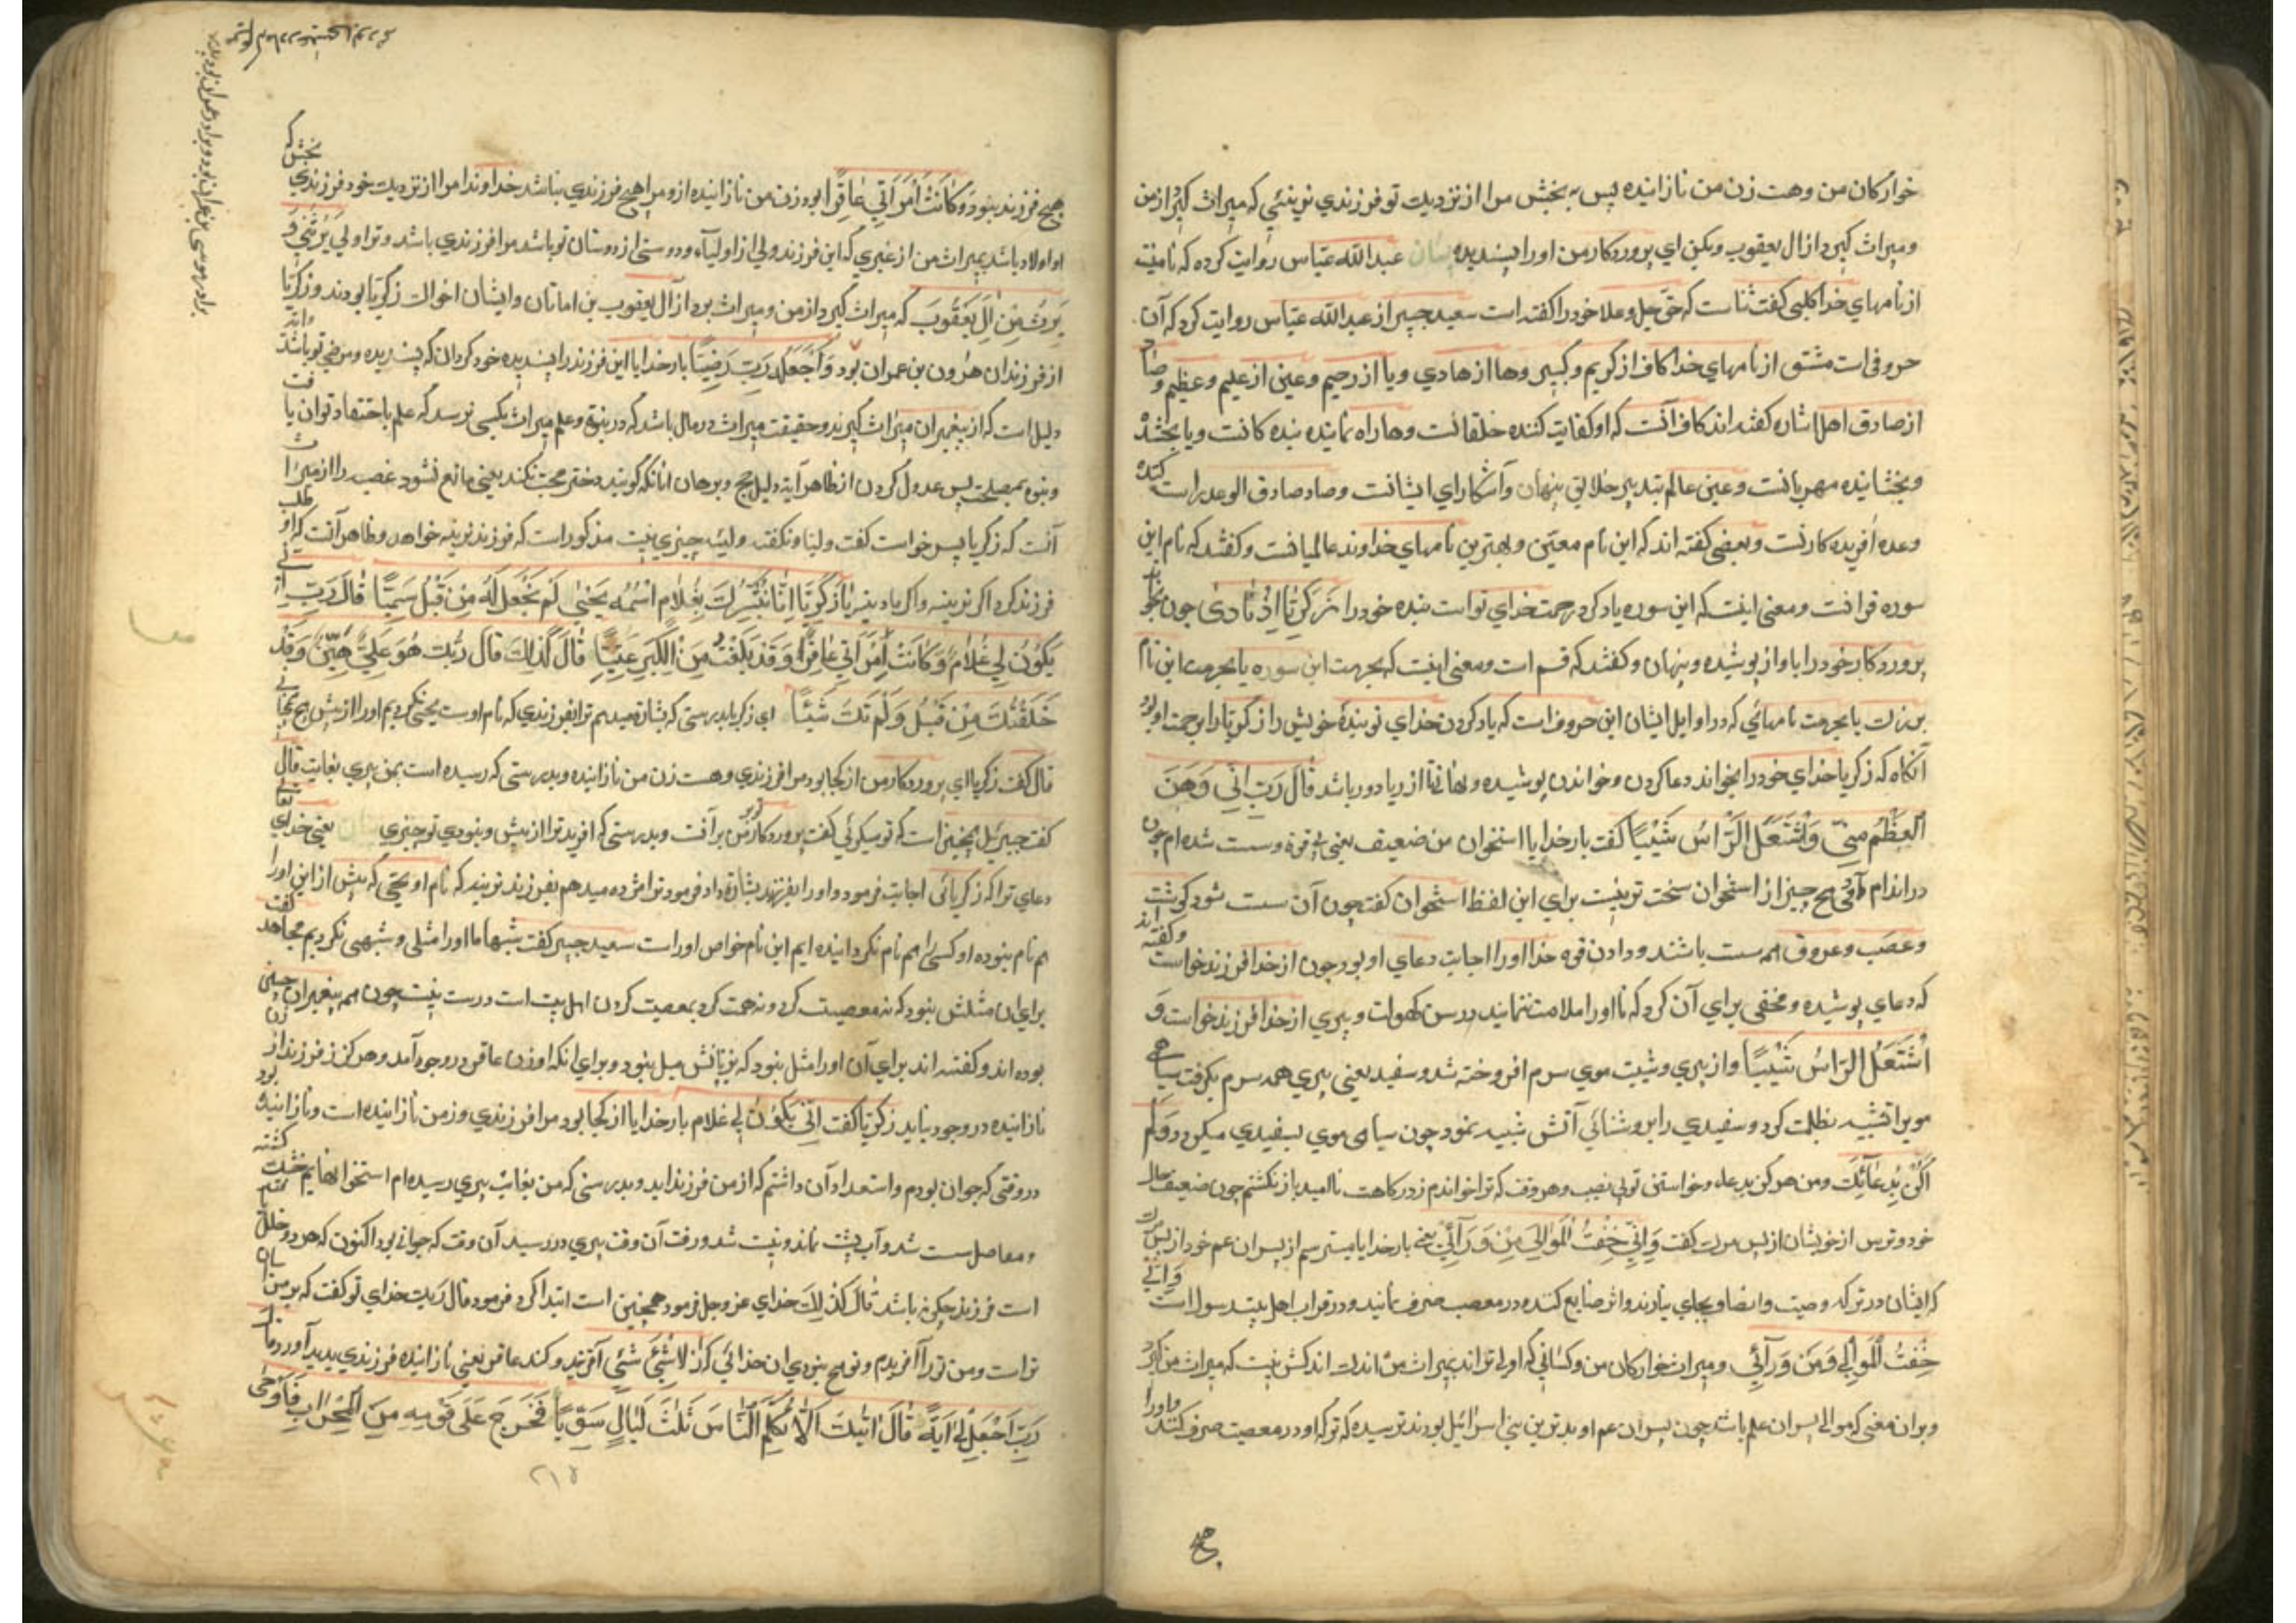 خوارکان من وهست زن من نازاینده پس به بخش مرا از نزدیک تو فرزندی نرینئی که میراث گیرد از من
ومیراث گیرد از ال یعقوب وبکن ای پروردکار من اورا پسندیده بیان عبدالله عبّاس روایت کرده که نامیست
از نامهای خدا کلبی گفت ثنا است که حق جل وعلا خود را گفته است سعید جبیر از عبدالله عبّاس روایت کرد که آن
حروفی است مشتق از نامهای خدا کاف از کریم وکبیر وها از هادی ویا از رحیم وعین از علیم وعظیم وصاد
از صادق اهل اشاره گفته اند کاف آنست که او کفایت کننده خلقانست وها راه نماینده بنده کانست ویا بخشنده
وبخشاینده مهربانست وعین عالم بتدبیر خلایق پنهان وآشکارای ایشانست وصاد صادق الوعد است
وعده آفریده کارست وبعضی گفته اند که این نام معیّن وبهترین نامهای خداوند عالمیانست وگفتند که نام این
سوره قرانست ومعنی اینست که این سوره یاد کرد رحمت خدای تو است بنده خود را زَكَرِيَّا إِذْ نَادَىٰ چون بخواند
پروردکار خود را باواز پوشیده وپنهان وگفتند که قسم است ومعنی اینست که بحرمت این سوره یا بحرمت این نام
بزرک یا بحرمت نامهائی که در اوایل ایشان این حروف است که یاد کردن خدای تو بندهٔ خویش را زکریّا را برحمت او بود
آنگاه که زکریا خدای خود را بخواند دعا کردن وخواندن پوشیده ونهان تا از ریا دور باشد قَالَ رَبِّ إِنِّي وَهَنَ
الْعَظْمُ مِنِّي وَاشْتَعَلَ الرَّأْسُ شَيْبًا گفت بار خدایا استخوان من ضعیف یعنی بی قوة وسست شده ام چون
در اندام آدمی هیچ چیز از استخوان سخت تر نیست برای این لفظ استخوان گفت چون آن سست شود گوشت
وعصب وعروق همه سست باشند ودادن قوه خدا اورا اجابت دعای او بود چون از خدا فرزند خواست وگفته اند
که دعای پوشیده ومخفی برای آن کرد که تا اورا ملامت ننمایند در سن کهولت وپیری از خدا فرزند خواست وَ
اشْتَعَلَ الرَّأْسُ شَيْبًا واز پیری وشیب موی سرم افروخته شد وسفید یعنی پیری همه سرم بگرفت سیاهی
مویرا تشبیه بظلمت کرد وسفیدی را بروشنائی آتش شبیه نمود چون سیاهی موی بسفیدی میکردد وَلَمْ
أَكُنْ بِدُعَائِكَ ومن هرگز بدعاء وخواستن تو بی نصیب وهر وقت که ترا خواندم از درکاهت ناامید باز نکشتم چون ضعیف حال
خود وترس از خویشان از پس مرک گفت وَإِنِّي خِفْتُ الْمَوَالِيَ مِنْ وَرَائِي یعنی بار خدایا میترسم از پسران عم خود از پس مرک
که ایشان در ترکه وصیت وایضا وبجای نیارند واثر ضایع کننده در معصب صرف نمایند ودر قراب اهل بیت رسول است وَإِنِّي
خِفْتُ الْمَوَالِيَ مِنْ وَرَائِي ومیراث خوارکان من وکسانی که اولی تراند بمیراث من اندک اند کس نیست که میراث من گیرد
وبران معنی که موالی پسران عم باشد چون پسران عم او بدترین بنی اسرائیل بودند ترسیده که ترکه او در معصیت صرف کنند واورا
هیچ
هیچ فرزند نبود وَكَانَتِ امْرَأَتِي عَاقِرًا بود زن من نازاینده از ومرا هیچ فرزندی نباشد خداوندا مرا از نزدیک خود فرزندی بخش که
او اولاد باشد بمیراث من از غیری که این فرزند ولی از اولیآء ودوستی از دوستان تو باشد مرا فرزندی باشد وترا ولی يَرِثُنِي وَ
يَرِثُ مِنْ آلِ يَعْقُوبَ که میراث گیرد از من ومیراث برد از آل یعقوب بن اماتان وایشان اخوال زکریّا بودند وزکریّا
از فرزندان هرون بن عمران بود وَاجْعَلْهُ رَبِّ رَضِيًّا بار خدایا این فرزند را پسندیده خود کردان که پسندیده ومرضی تو باشد واین
دلیل است که از پیغمبران میراث گیرند وحقیقت میراث در مال باشد که در نبوّة وعلم میراث بکسی نرسد که علم باجتهاد توان یافت
ونبوه بمصلحت پس عدول کردن از ظاهر آیة دلیل حج وبرهان آنانکه گویند دختر حجب نکند یعنی مانع نشود عصبه را از میراث
آنست که زکریا پسر خواست گفت ولیّا ونکفت ولیّة چیزی نیست مذکور است که فرزند نرینه خواهد وظاهر آنست که او طلب
فرزند کرد اگر نرینه واگر مادینه يَا زَكَرِيَّا إِنَّا نُبَشِّرُكَ بِغُلَامٍ اسْمُهُ يَحْيَىٰ لَمْ نَجْعَلْ لَهُ مِنْ قَبْلُ سَمِيًّا قَالَ رَبِّ أَنَّىٰ
يَكُونُ لِي غُلَامٌ وَكَانَتِ امْرَأَتِي عَاقِرًا وَقَدْ بَلَغْتُ مِنَ الْكِبَرِ عِتِيًّا قَالَ كَذَٰلِكَ قَالَ رَبُّكَ هُوَ عَلَيَّ هَيِّنٌ وَقَدْ
خَلَقْتُكَ مِنْ قَبْلُ وَلَمْ تَكُ شَيْئًا ای زکریا بدرستی که بشارة میدهم ترا بفرزندی که نام اوست یحیی نکردیم اورا از پیش هیچ همنامی
قال گفت زکریا ای پروردکار من از کجا بود مرا فرزندی وهست زن من نازاینده وبدرستی که رسیده است بمن پیری بغایت قال
گفت جبرئیل همچنین است که تو میکوئی گفت پروردکار تو بر من آسانست وبدرستی که آفرید ترا از پیش ونبودی تو چیزی بیان یعنی خدای تعالی
دعای ترا که زکریائی اجابت فرمود واورا بفرزند بشارة داد فرمود ترا مژده میدهم بفرزند نرینه که نام او یحیی که پیش از این اورا
هم نام نبوده او کسی را هم نام نکردانیده ایم این نام خواص اوراست سعید جبیر گفت شبهاما اورا مثلی وشبهی نکردیم مجاهد گفت
برای ان مثلش نبود که نه معصیت کرد ونه همت کرد بمعصیت کردن اهل بیت است درست نیست چون همه پیغمبران چنین
بوده اند وگفته اند برای آن اورا مثل نبود که بزنانش میل نبود وبرای انکه او از زن عاقر در وجود آمد وهرگز فرزند از زن
نازاینده در وجود نیاید زکریّا گفت أَنَّىٰ يَكُونُ لِي غُلَامٌ بار خدایا از کجا بود مرا فرزندی وزن من نازاینده است ونازاینده بود
در وقتی که جوان بودم واستعداد آن داشتم که از من فرزند اید وبدرستی که من بغایت پیری رسیده ام استخوانهایم خشک کشته
ومفاصل سست شد وآب پشت نماند ونیست شد ورفت آن وقت پیری در رسید آن وقت که جوانی بود اکنون که هر دو خلل
است فرزند چگونه باشد قَالَ كَذَٰلِكَ خدای عز وجل فرمود همچنین است ابتدا کرد فرمود قال رَبُّكَ خدای تو گفت که بر من آسان
تراست ومن تورا آفریدم وتو هیچ نبودی ان خدائی که از لاشئ شئ آفریند وکند عاقر یعنی نازاینده فرزندی پدید آورد قال
رَبِّ اجْعَلْ لِي آيَةً قَالَ آيَتُكَ أَلَّا تُكَلِّمَ النَّاسَ ثَلَاثَ لَيَالٍ سَوِيًّا فَخَرَجَ عَلَىٰ قَوْمِهِ مِنَ الْمِحْرَابِ فَأَوْحَىٰ
۲۱۵